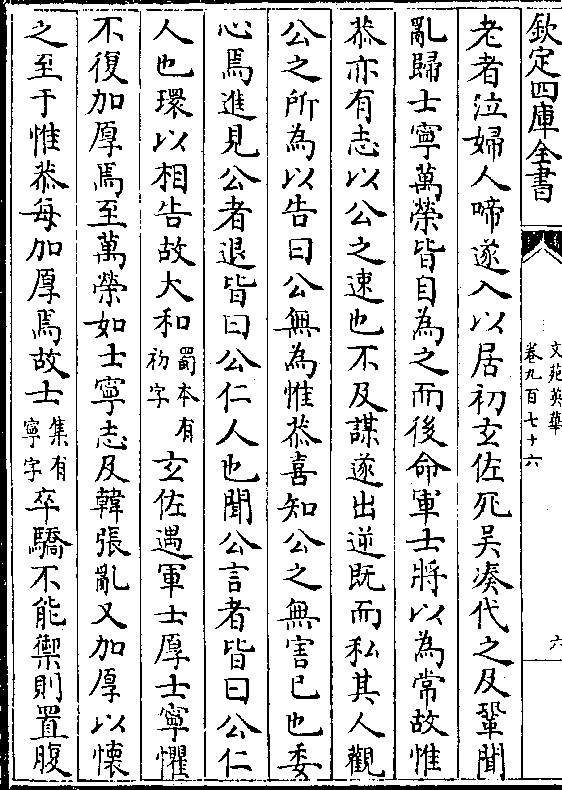 欽定四庫全書
文苑英華
卷九百七十六
六
老者泣婦人啼遂入以居初玄佐死吳湊代之及鞏聞
亂歸士寧萬榮皆自為之而後命軍士將以為常故惟
恭亦有志以公之速也不及謀遂出逆既而私其人觀
公之所為以告曰公無為惟恭喜知公之無害已也委
心焉進見公者退皆曰公仁人也聞公言者皆曰公仁
人也環以相告故大和蜀本有初字玄佐遇軍士厚士寧懼
不復加厚焉至萬榮如士寧志及韓張亂又加厚以懷
之至于惟恭每加厚焉故士集有寧字卒驕不能禦則置腹